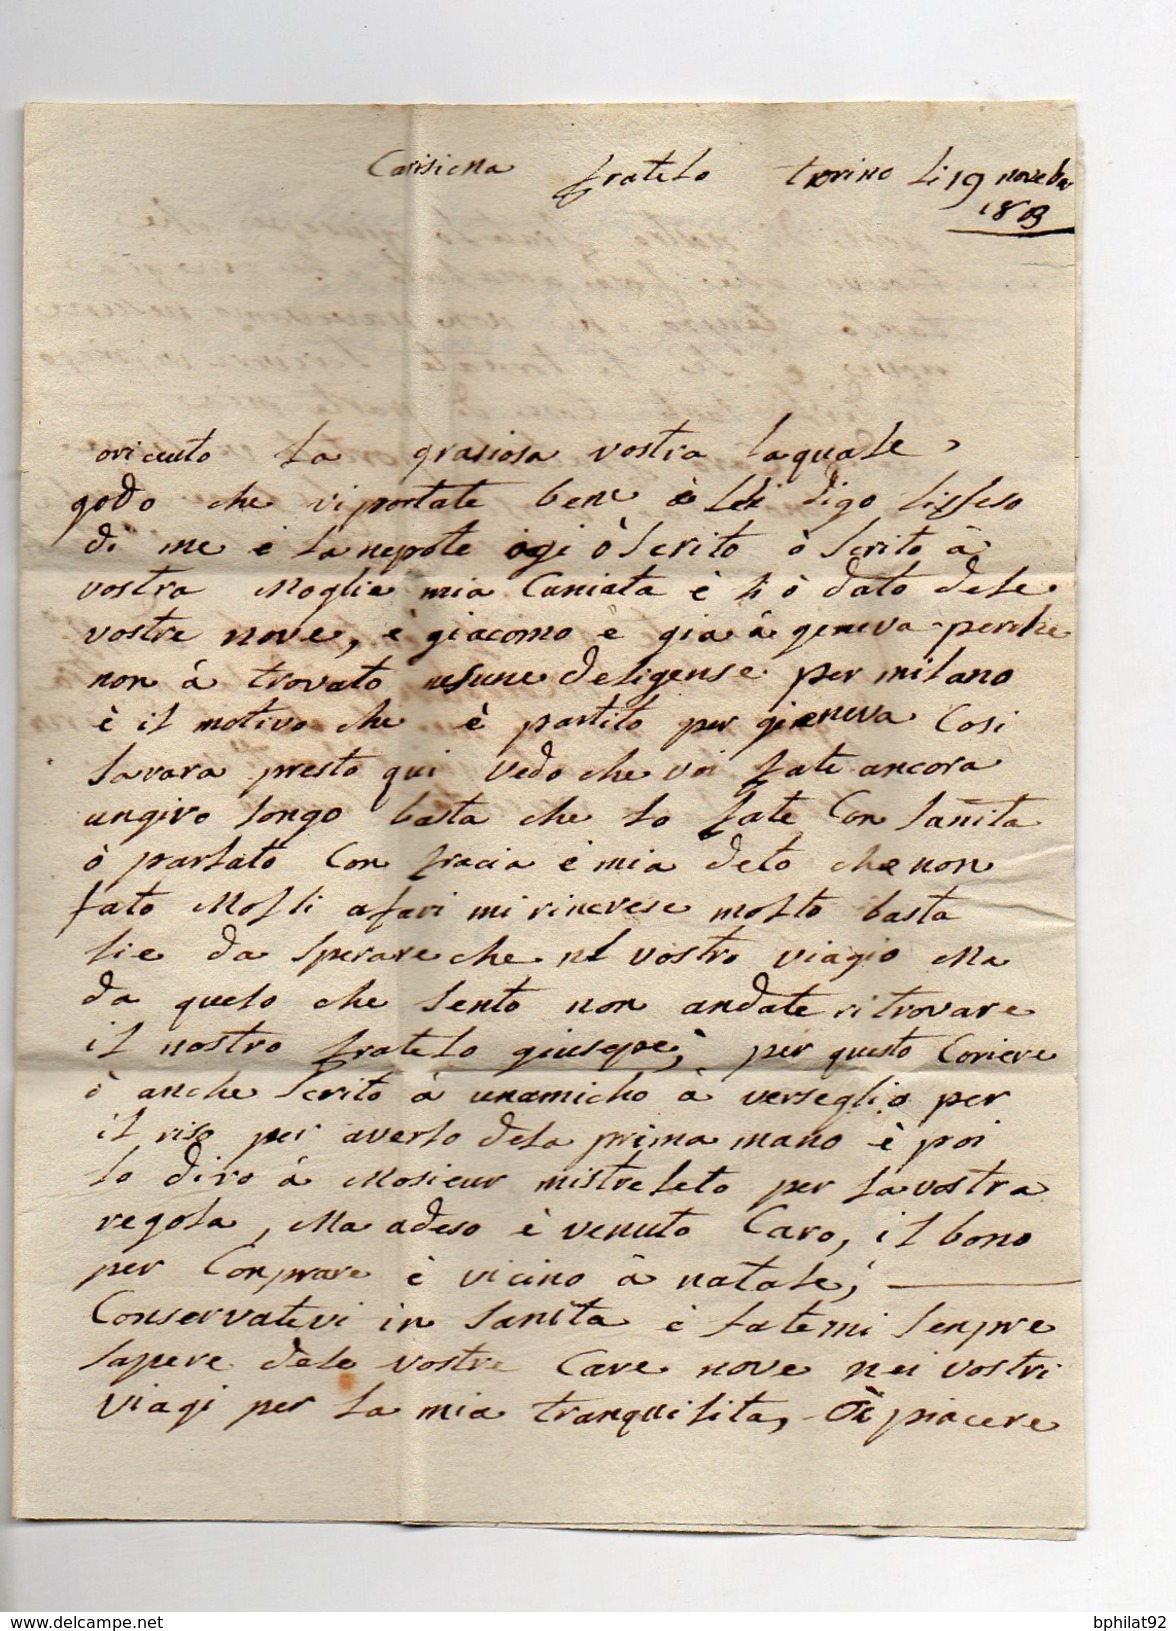 Carisimo fratelo torino li 19 novebr
1803
oricuto la grasiosa vostra laquale,
godo che viportate bene è lei digo listeso
di me e la nepote ogi ò scrito ò scrito à
vostra Moglie mia Cuniata è li ò dato dele
vostre nove, è giacomo è gia à geneva perche
non á trovato nesune deligense per milano
è il motivo che è partito per gieneva Cosi
lavara presto qui vedo che voi fate ancora
ungiro longo basta che lo fate Con sanita
ò parlato Con fracia è mia deto che non
fato Molti afari mi rincrese molto basta
lie da sperare che nel vostro viagio Ma
da quelo che sento non andate ritrovare
il nostro fratelo giusepe, per questo Coriere
ò anche scrito à unamicho à verseglio per
il riso per averlo dela prima mano è poi
lo diro à Mosieur mistreleto per la vostra
regola, Ma adeso è venuto Caro, il bono
per Conprare è vicino à natale,
Conservatevi in sanita è fatemi senpre
sapere dele vostre Care nove nei vostri
viagi per la mia tranquilita, Di piacere
bphilat92